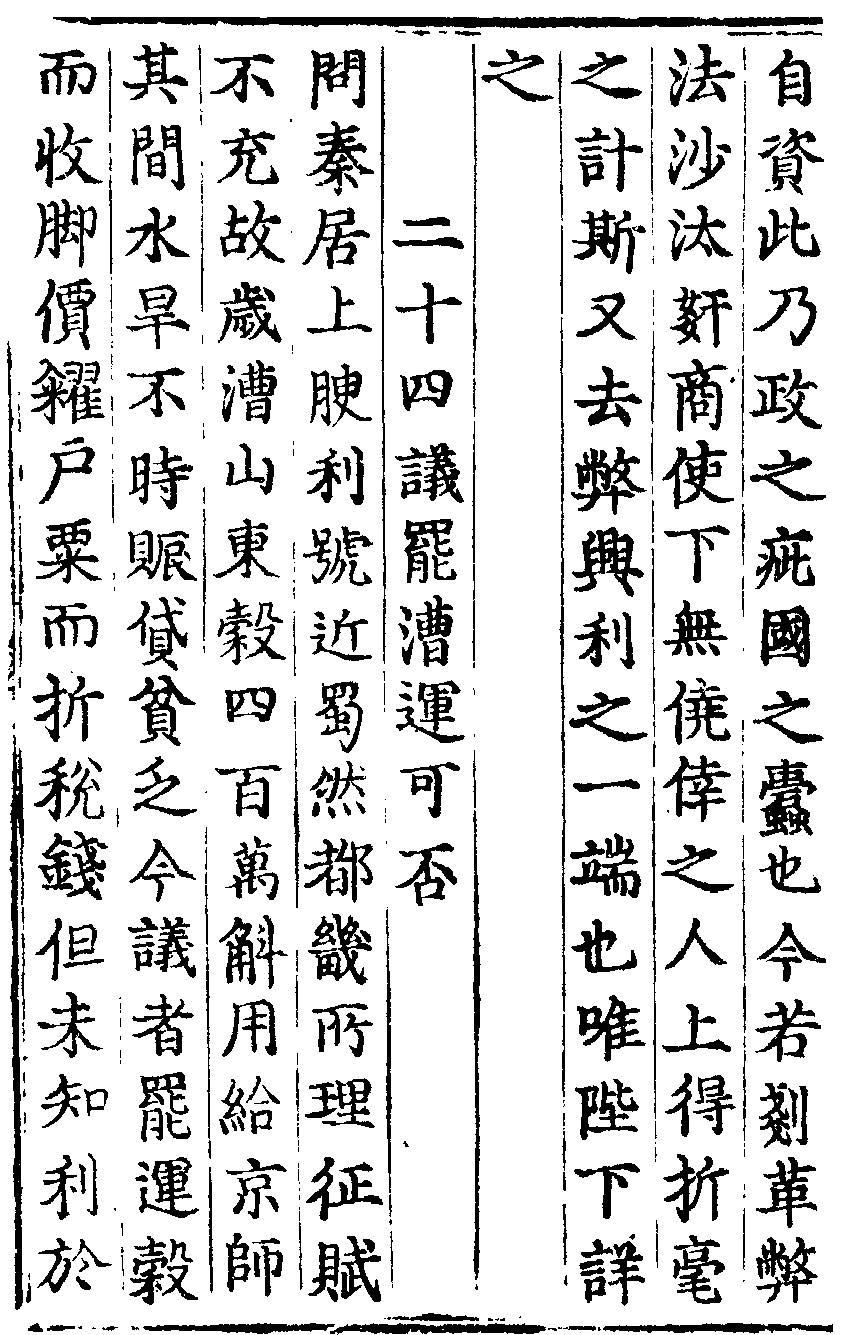 自資此乃政之疵國之蠹也今若剗革弊
法沙汰姧商使下無僥倖之人上得折毫
之計斯又去弊興利之一端也唯陛下詳
之
二十四議罷漕運可否
問秦居上腴利號近蜀然都畿所理征賦
不充故歲漕山東穀四百萬斛用給京師
其間水旱不時賑貸貧乏今議者罷運穀
而收脚價糴戶粟而折稅錢但未知利於